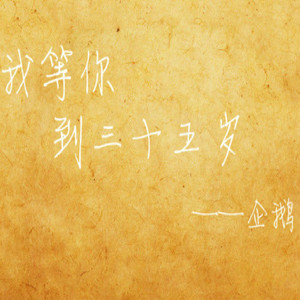 我等你
到三十五岁
——企鹅